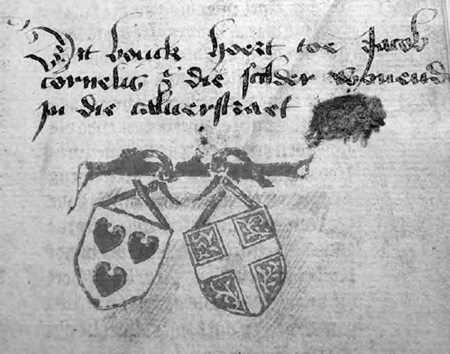 Dit bouck hoert toe Jacob
cornelis z die scilder wonend
in die caluerstraet